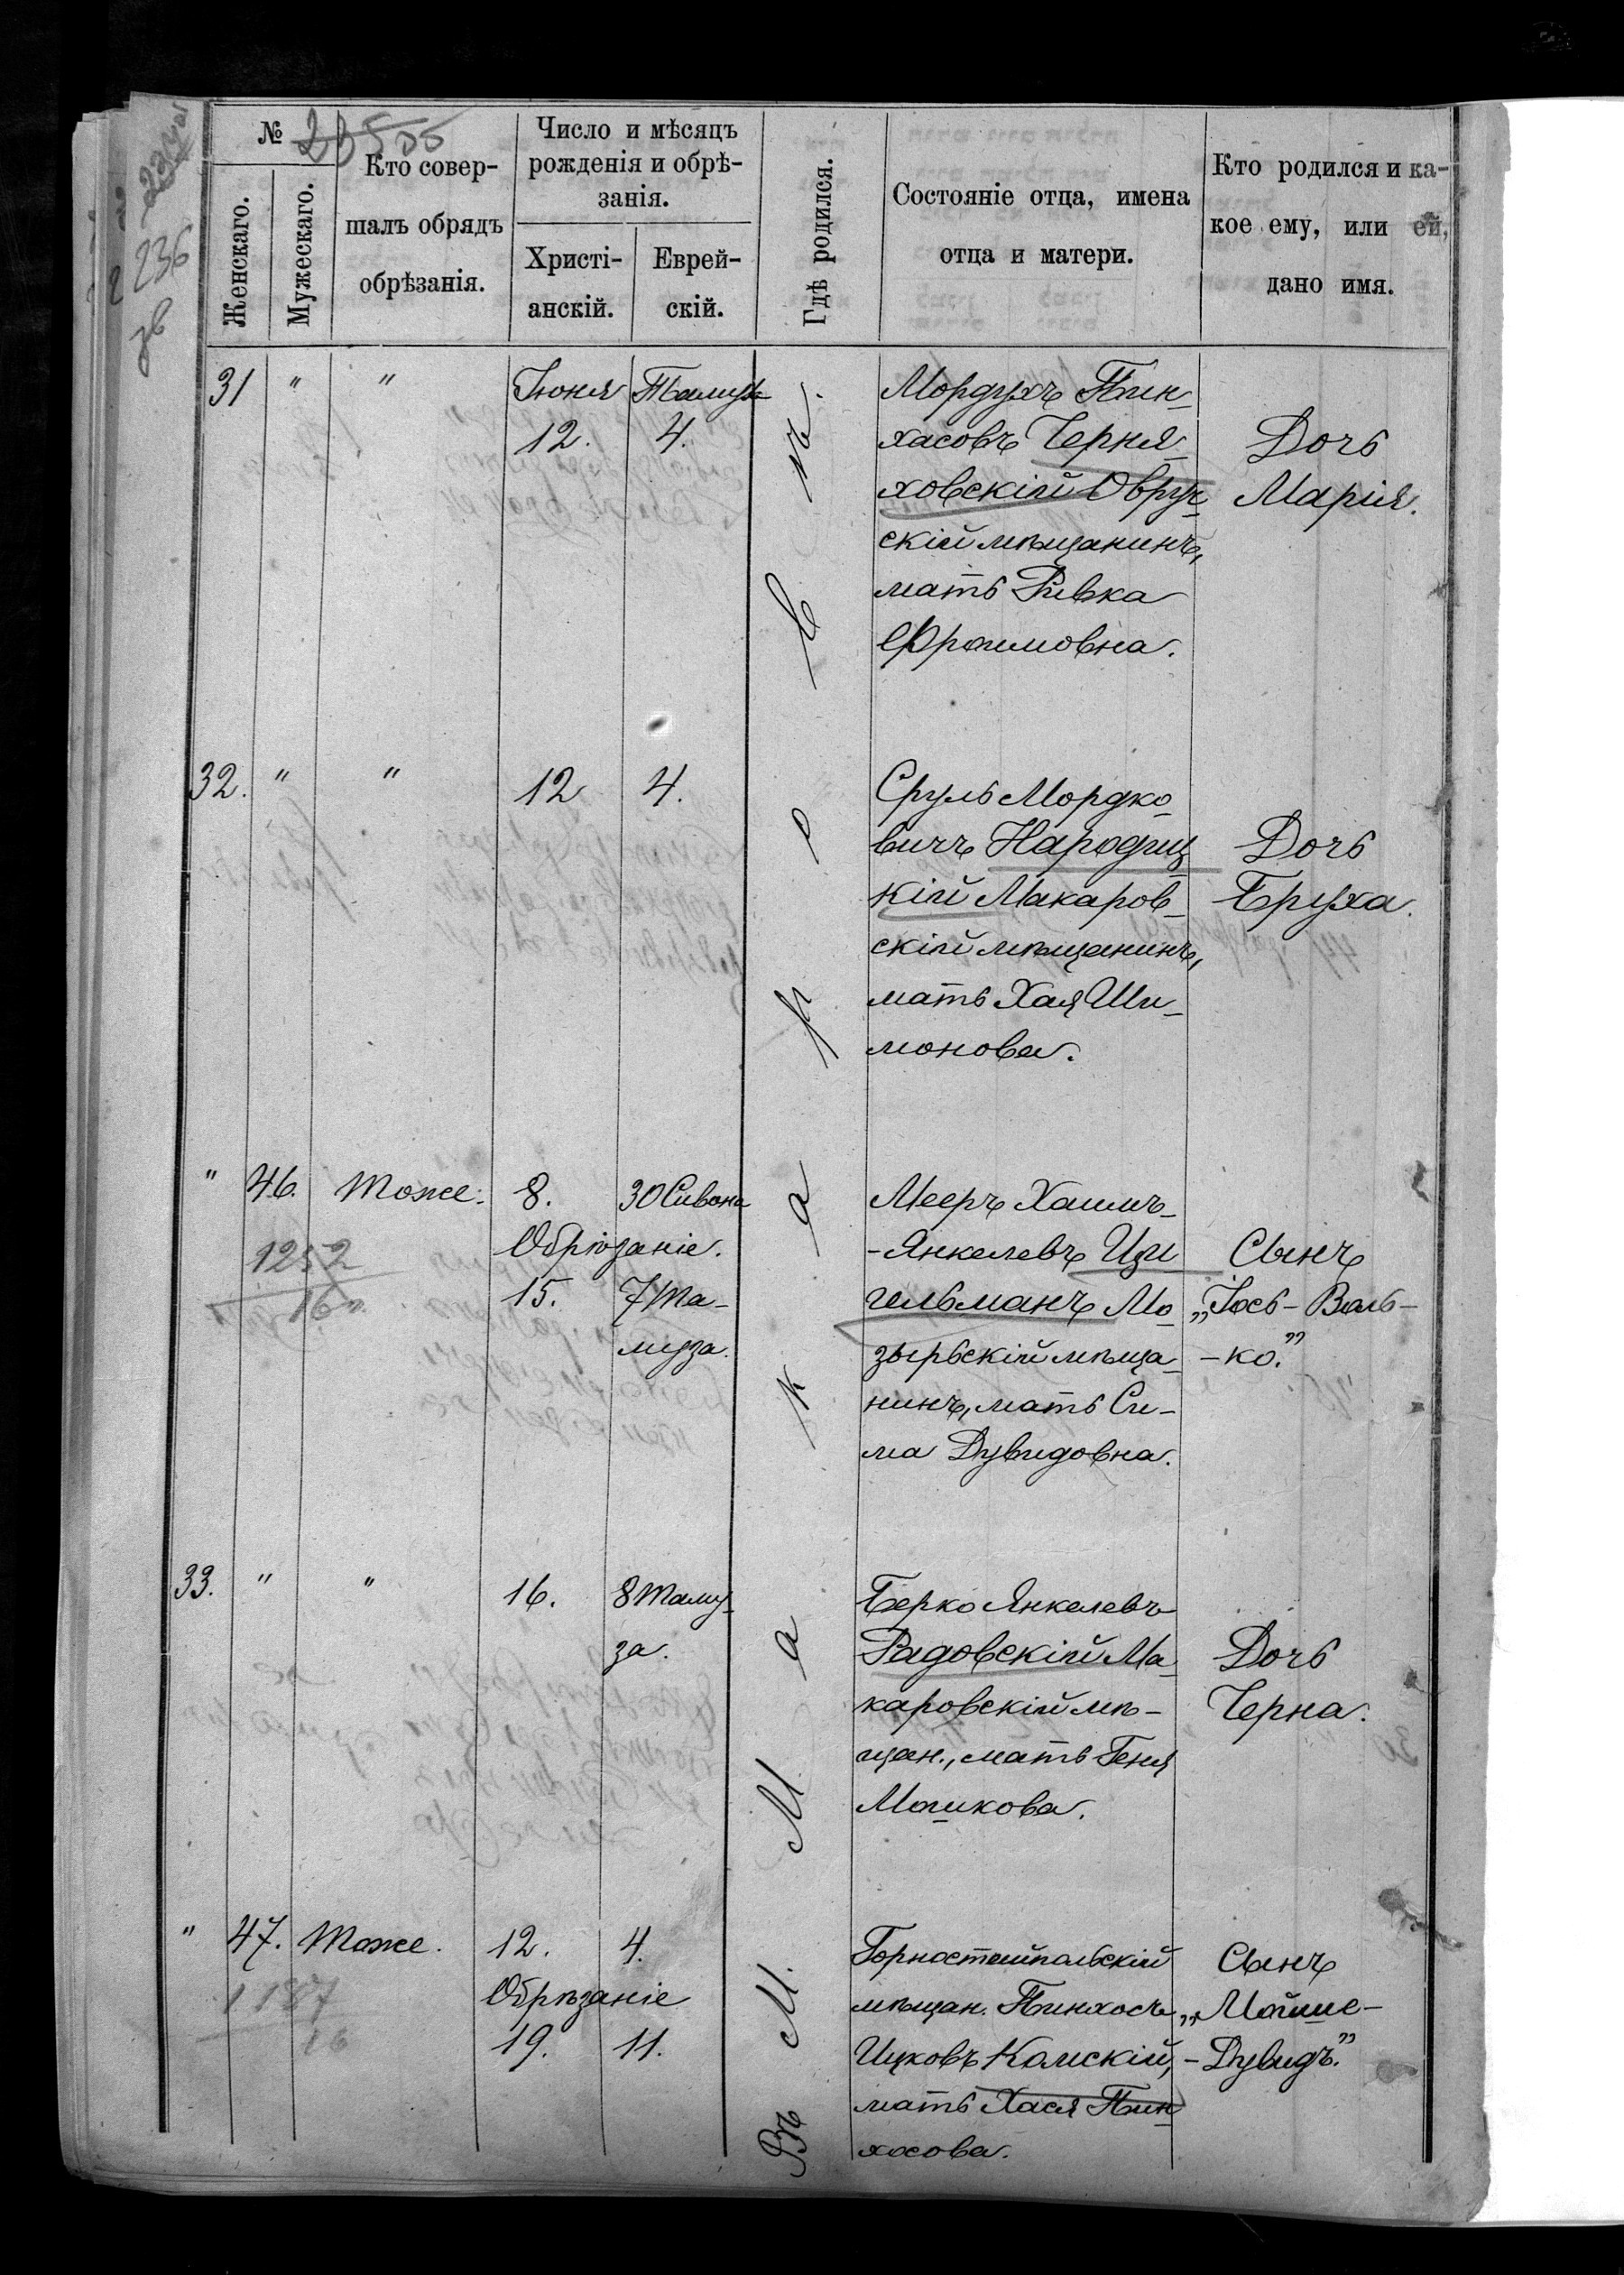 № 23505
236
Женскаго.
Мужескаго.
Кто совер-
шалъ обрядъ
обрѣзанія.
Число и мѣсяцъ
рожденія и обрѣ-
занія.
Христі-
анскій.
Еврей-
скій.
Гдѣ родился.
Состояніе отца, имена
отца и матери.
Кто родился и ка-
кое ему, или ей,
дано имя.
Въ М. Макаровъ.
31 " " Іюня Тамуза
12. 4.
Мордухъ Пин-
хасовъ Черня-
ховскій Овруч-
скій мѣщанинъ,
мать Ривка
Фроимовна.
Дочь
Марія.
32. " " 12 4.
Сруль Мордко-
вичъ Народиц-
кій Макаров-
скій мѣщанинъ,
мать Хая Ши-
монова.
Дочь
Бруха.
" 46. Тоже. 8. 30 Сивона
Обрѣзаніе.
15. 7 Та-
муза.
1252
16
Мееръ Хаимъ-
-Янкелевъ Циги-
ельманъ Мо-
зырьскій мѣща-
нинъ, мать Си-
ма Дувидовна.
Сынъ
„Іось-Воль-
-ко."
33. " " 16. 8 Таму-
за.
Берко Янкелевъ
Радовскій Ма-
каровскій мѣ-
щан., мать Геня
Мошкова.
Дочь
Черна.
" 47. Тоже. 12. 4.
Обрѣзаніе
19. 11.
1187
16
Горностайпольскій
мѣщан. Пинхосъ
Ицковъ Камскій,
мать Хася Пин-
хосова.
Сынъ
„Мойше-
-Дувидъ."